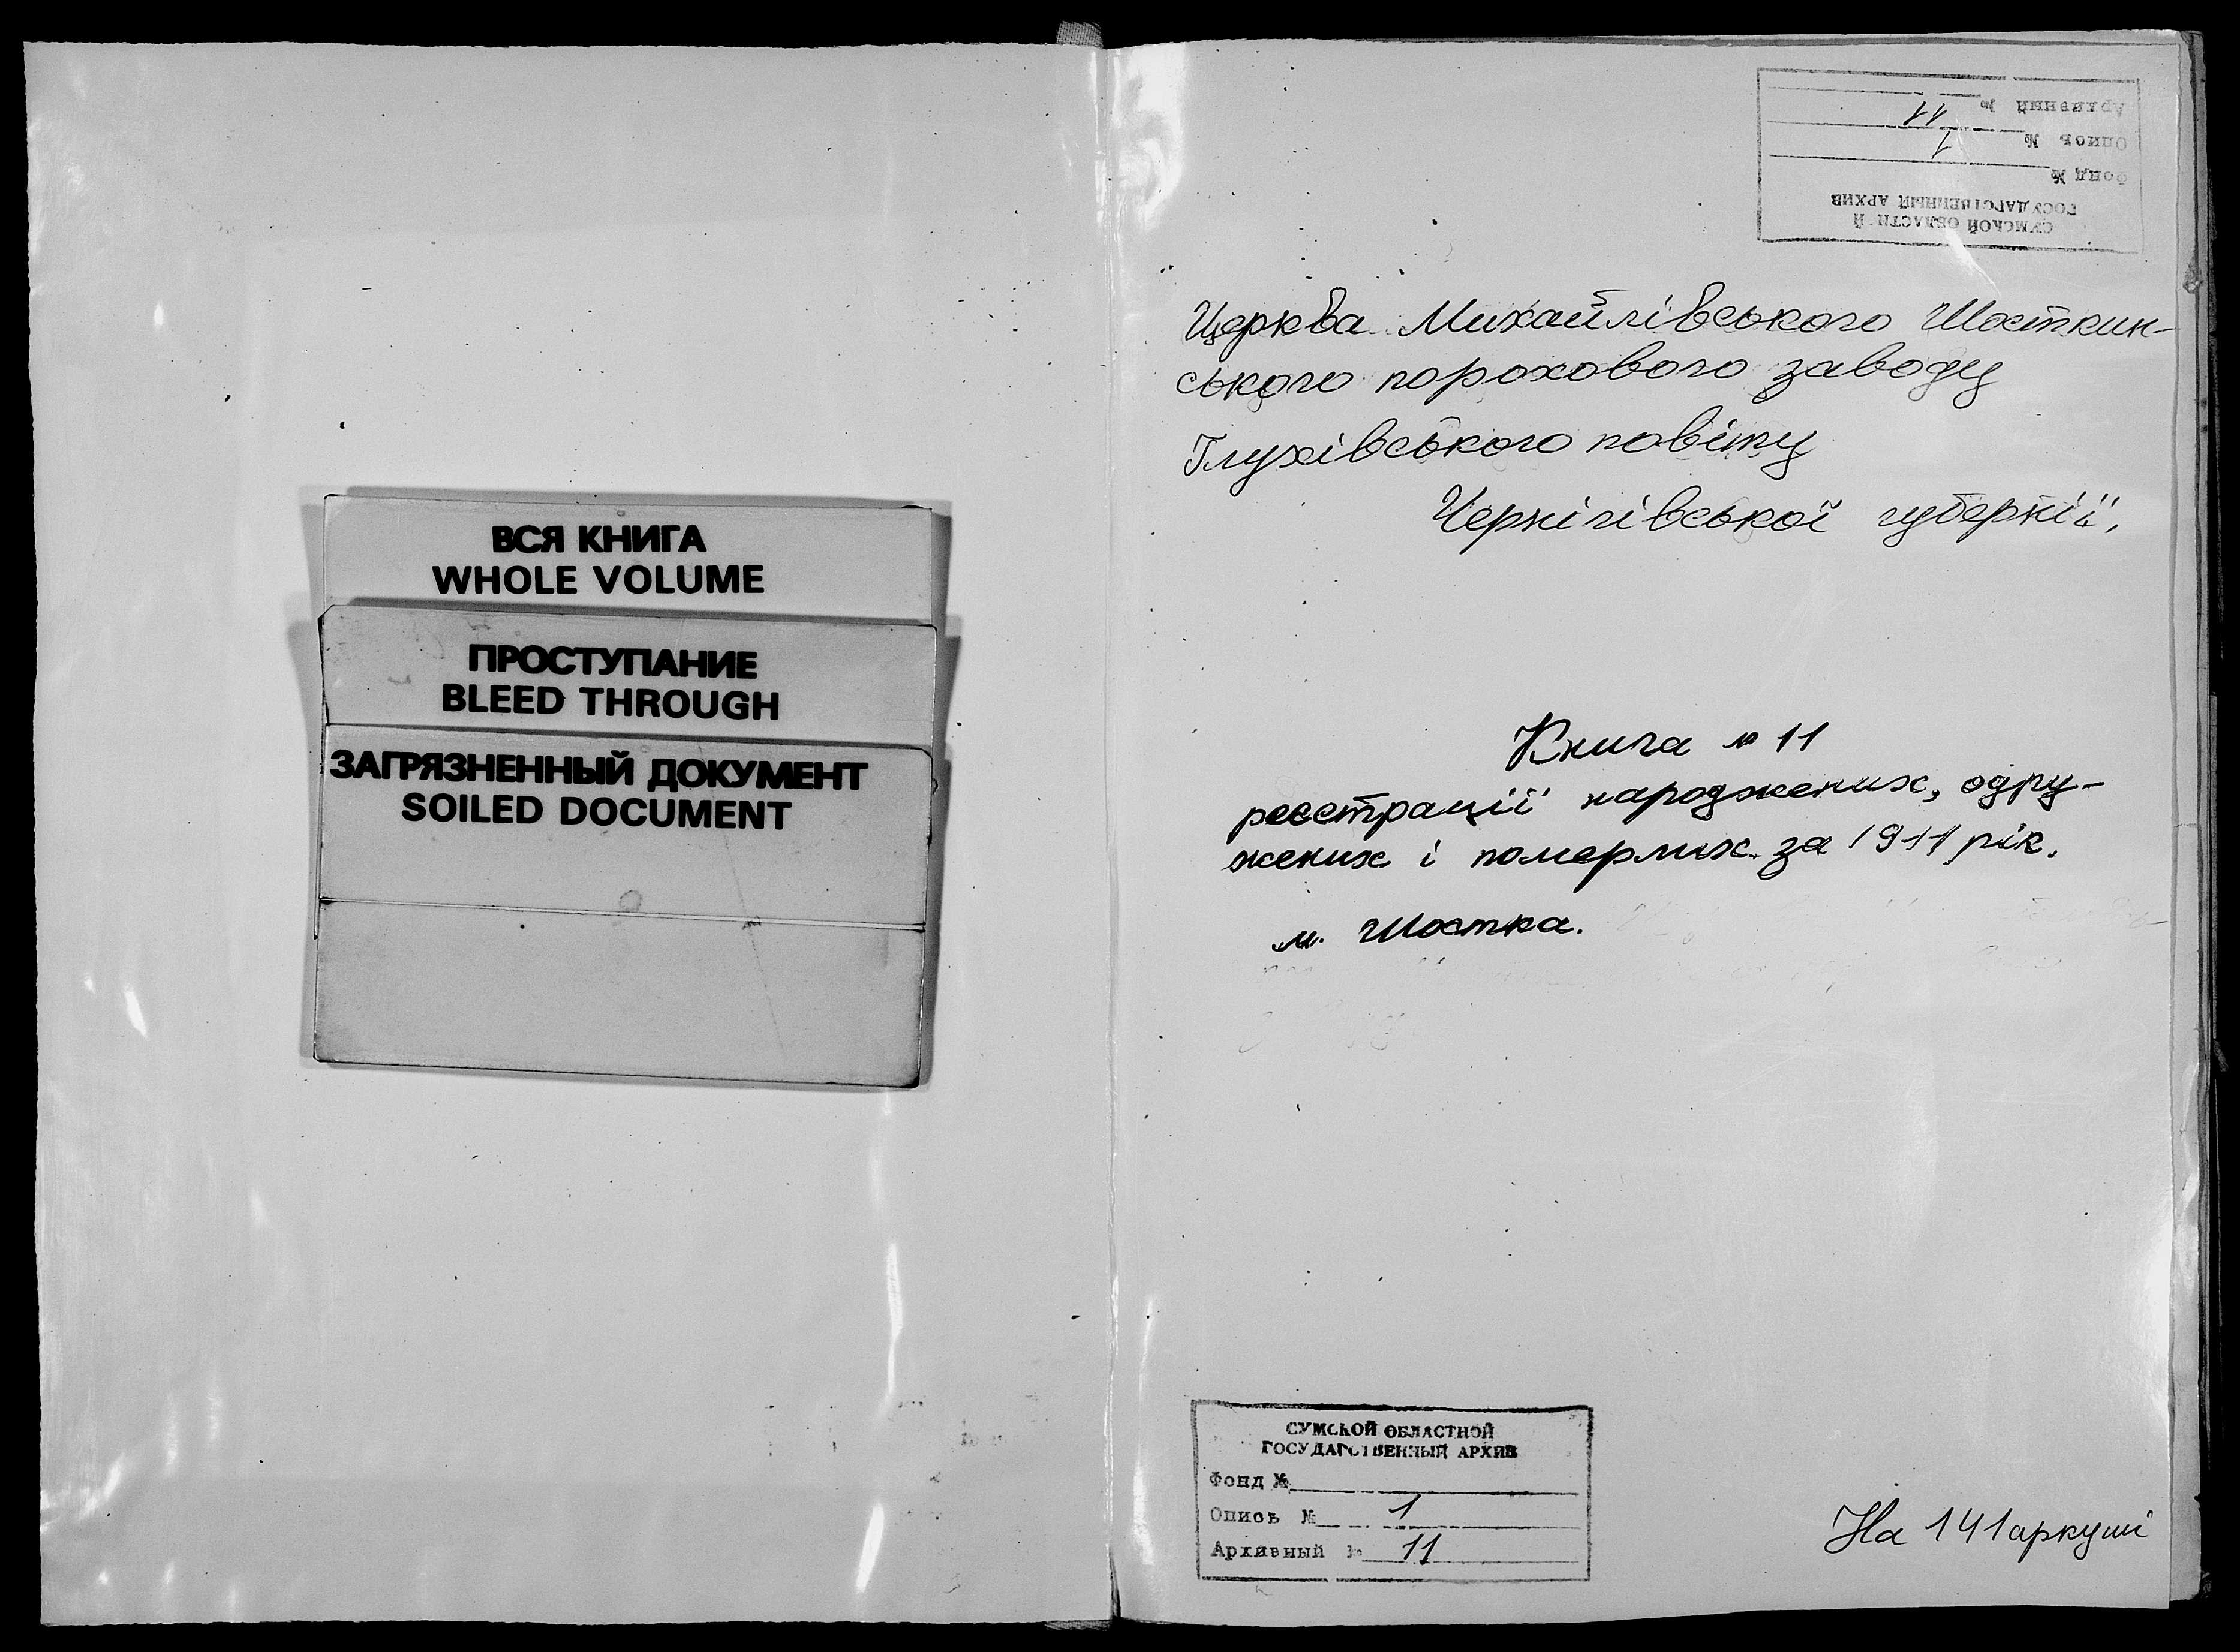 ВСЯ КНИГА
WHOLE VOLUME
ПРОСТУПАНИЕ
BLEED THROUGH
ЗАГРЯЗНЕННЫЙ ДОКУМЕНТ
SOILED DOCUMENT
СУМСКОЙ ОБЛАСТНОЙ
ГОСУДАРСТВЕННЫЙ АРХИВ
Фонд №
Опись № 1
Архивный № 11
Церква Михайлівського Шосткин-
ського порохового заводу
Глухівського повіту
Чернігівської губернії,
Книга № 11
реєстрації народжених, одру-
жених і померлих за 1911 рік.
м. Шостка.
СУМСКОЙ ОБЛАСТНОЙ
ГОСУДАРСТВЕННЫЙ АРХИВ
Фонд №
Опись № 1
Архивный № 11
На 141 аркуші